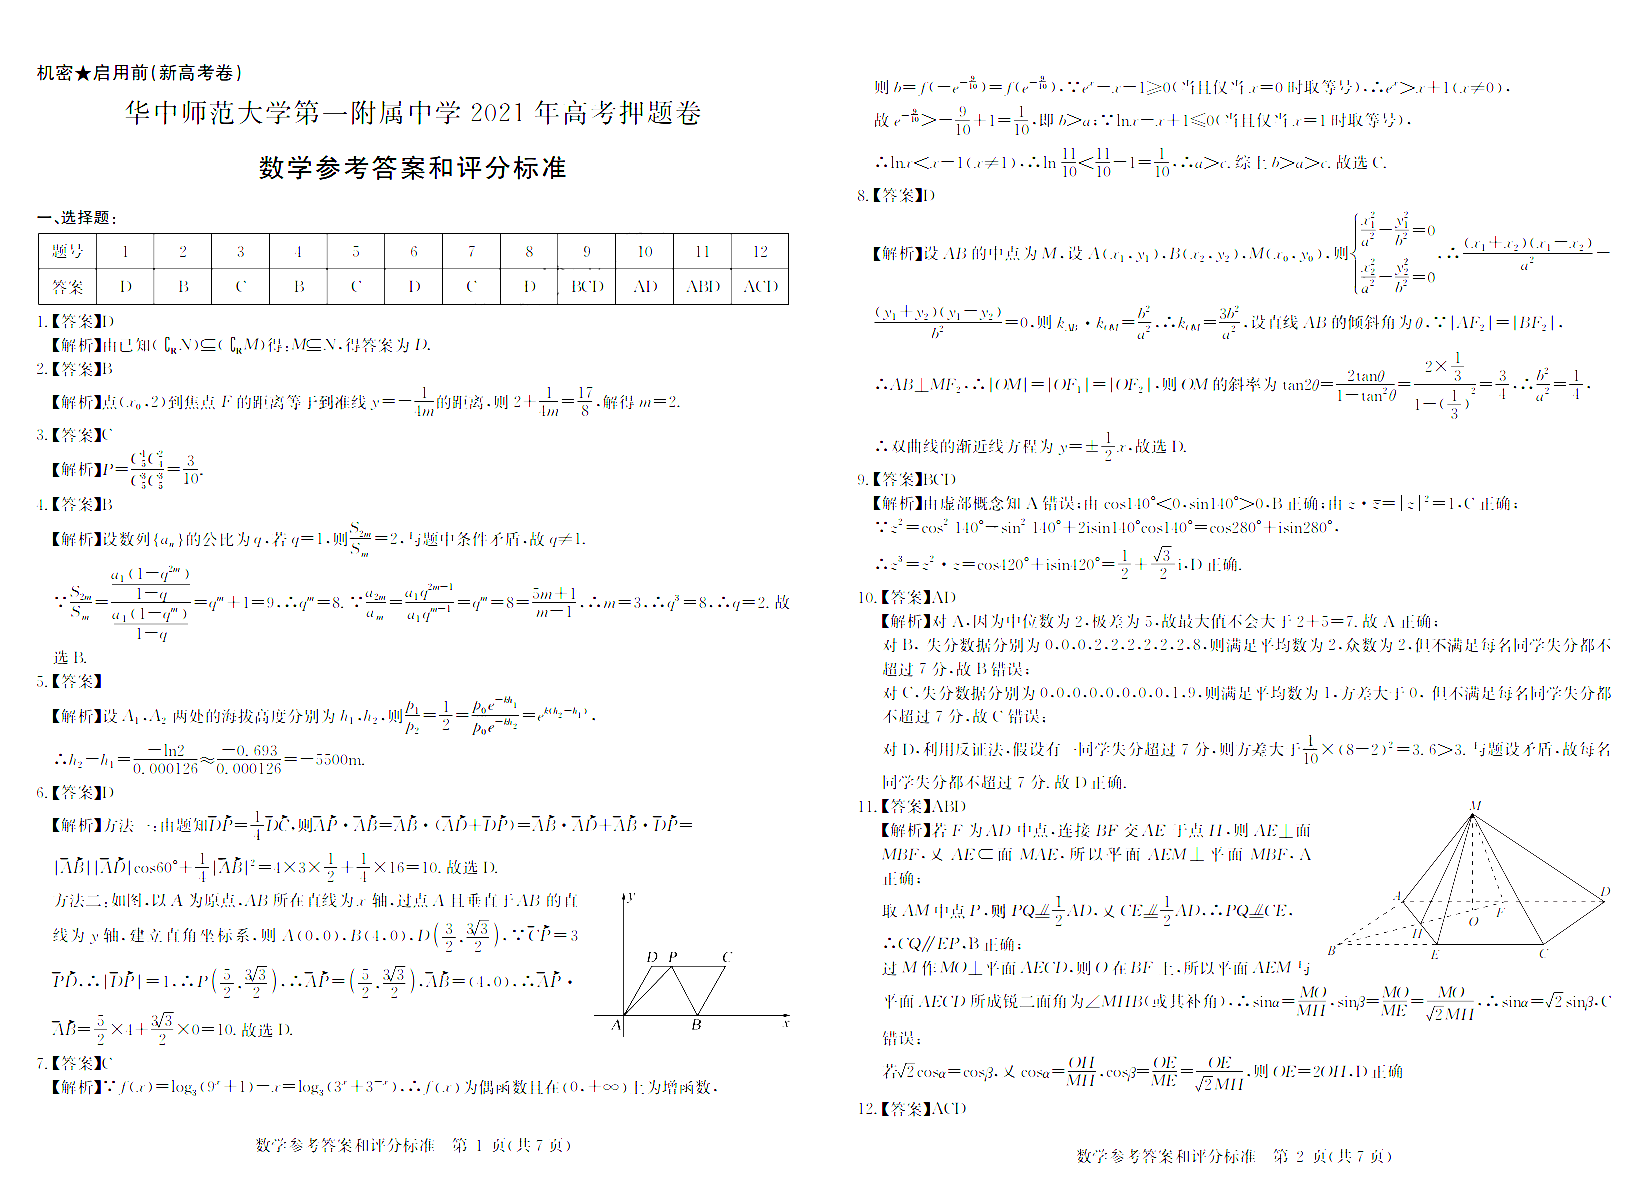 机密★启用前(新高考卷)
华中师范大学第一附属中学 2021 年高考押题卷
数学参考答案和评分标准
一、选择题:
题号 1 2 3 4 5 6 7 8 9 10 11 12
答案 D B C B C D C D BCD AD ABD ACD
1.【答案】D
【解析】由已知(∁RN)⊆(∁RM)得:M⊆N,得答案为 D.
2.【答案】B
【解析】点(x₀,2)到焦点 F 的距离等于到准线 y=-1/(4m)的距离,则 2+1/(4m)=17/8,解得 m=2.
3.【答案】C
【解析】P=
=3/10.
4.【答案】B
【解析】设数列{aₙ}的公比为 q,若 q=1,则S₂ₘ/Sₘ=2,与题中条件矛盾,故 q≠1.
∵S₂ₘ/Sₘ=[a₁(1-q^(2m))/(1-q)]/[a₁(1-q^m)/(1-q)]=q^m+1=9,∴q^m=8. ∵a₂ₘ/aₘ=a₁q^(2m-1)/(a₁q^(m-1))=q^m=8=(5m+1)/(m-1),∴m=3,∴q³=8,∴q=2. 故
选 B.
5.【答案】
【解析】设 A₁,A₂ 两处的海拔高度分别为 h₁,h₂,则p₁/p₂=1/2=p₀e^(-kh₁)/(p₀e^(-kh₂))=e^(k(h₂-h₁)),
∴h₂-h₁=-ln2/0.000126≈-0.693/0.000126=-5500m.
6.【答案】D
【解析】方法一:由题知DP→=1/4 DC→,则AP→·AB→=AB→·(AD→+DP→)=AB→·AD→+AB→·DP→=
|AB→||AD→|cos60°+1/4|AB→|²=4×3×1/2+1/4×16=10. 故选 D.
方法二:如图,以 A 为原点,AB 所在直线为 x 轴,过点 A 且垂直于 AB 的直
线为 y 轴,建立直角坐标系,则 A(0,0),B(4,0),D(3/2,3√3/2),∵CP→=3
PD→,∴|DP→|=1,∴P(5/2,3√3/2),∴AP→=(5/2,3√3/2),AB→=(4,0),∴AP→·
AB→=5/2×4+3√3/2×0=10. 故选 D.
y
D P C
A B x
7.【答案】C
【解析】∵f(x)=log₃(9^x+1)-x=log₃(3^x+3^(-x)),∴f(x)为偶函数且在(0,+∞)上为增函数,
数学参考答案和评分标准 第 1 页(共 7 页)
则 b=f(-e^(-9/10))=f(e^(-9/10)),∵e^x-x-1≥0(当且仅当 x=0 时取等号),∴e^x>x+1(x≠0),
故 e^(-9/10)>-9/10+1=1/10,即 b>a;∵lnx-x+1≤0(当且仅当 x=1 时取等号),
∴lnx<x-1(x≠1),∴ln 11/10<11/10-1=1/10,∴a>c. 综上 b>a>c. 故选 C.
8.【答案】D
【解析】设 AB 的中点为 M,设 A(x₁,y₁),B(x₂,y₂),M(x₀,y₀),则{x₁²/a²-y₁²/b²=0 x₂²/a²-y₂²/b²=0,∴(x₁+x₂)(x₁-x₂)/a²-
(y₁+y₂)(y₁-y₂)/b²=0,则 k_AB·k_OM=b²/a²,∴k_OM=3b²/a²,设直线 AB 的倾斜角为 θ,∵|AF₂|=|BF₂|,
∴AB⊥MF₂,∴|OM|=|OF₁|=|OF₂|,则 OM 的斜率为 tan2θ=2tanθ/(1-tan²θ)=(2×1/3)/(1-(1/3)²)=3/4,∴b²/a²=1/4,
∴双曲线的渐近线方程为 y=±1/2 x,故选 D.
9.【答案】BCD
【解析】由虚部概念知 A 错误;由 cos140°<0,sin140°>0,B 正确;由 z·z̄=|z|²=1,C 正确;
∵z²=cos² 140°-sin² 140°+2isin140°cos140°=cos280°+isin280°,
∴z³=z²·z=cos420°+isin420°=1/2+√3/2 i,D 正确.
10.【答案】AD
【解析】对 A,因为中位数为 2,极差为 5,故最大值不会大于 2+5=7. 故 A 正确;
对 B, 失分数据分别为 0,0,0,2,2,2,2,2,2,8,则满足平均数为 2,众数为 2,但不满足每名同学失分都不
超过 7 分,故 B 错误;
对 C,失分数据分别为 0,0,0,0,0,0,0,0,1,9,则满足平均数为 1,方差大于 0, 但不满足每名同学失分都
不超过 7 分,故 C 错误;
对 D,利用反证法,假设有一同学失分超过 7 分,则方差大于1/10×(8-2)²=3.6>3. 与题设矛盾,故每名
同学失分都不超过 7 分. 故 D 正确.
11.【答案】ABD
【解析】若 F 为 AD 中点,连接 BF 交 AE 于点 H,则 AE⊥面
MBF,又 AE⊂面 MAE,所以平面 AEM⊥平面 MBF,A
正确;
取 AM 中点 P,则 PQ∥=1/2 AD,又 CE∥=1/2 AD,∴PQ∥=CE,
∴CQ∥EP,B 正确;
过 M 作 MO⊥平面 AECD,则 O 在 BF 上,所以平面 AEM 与
平面 AECD 所成锐二面角为∠MHB(或其补角),∴sinα=MO/MH,sinβ=MO/ME=MO/(√2MH),∴sinα=√2sinβ,C
错误;
若√2cosα=cosβ,又 cosα=OH/MH,cosβ=OE/ME=OE/(√2MH),则 OE=2OH,D 正确
M
A D
F
H O
B
E C
12.【答案】ACD
数学参考答案和评分标准 第 2 页(共 7 页)